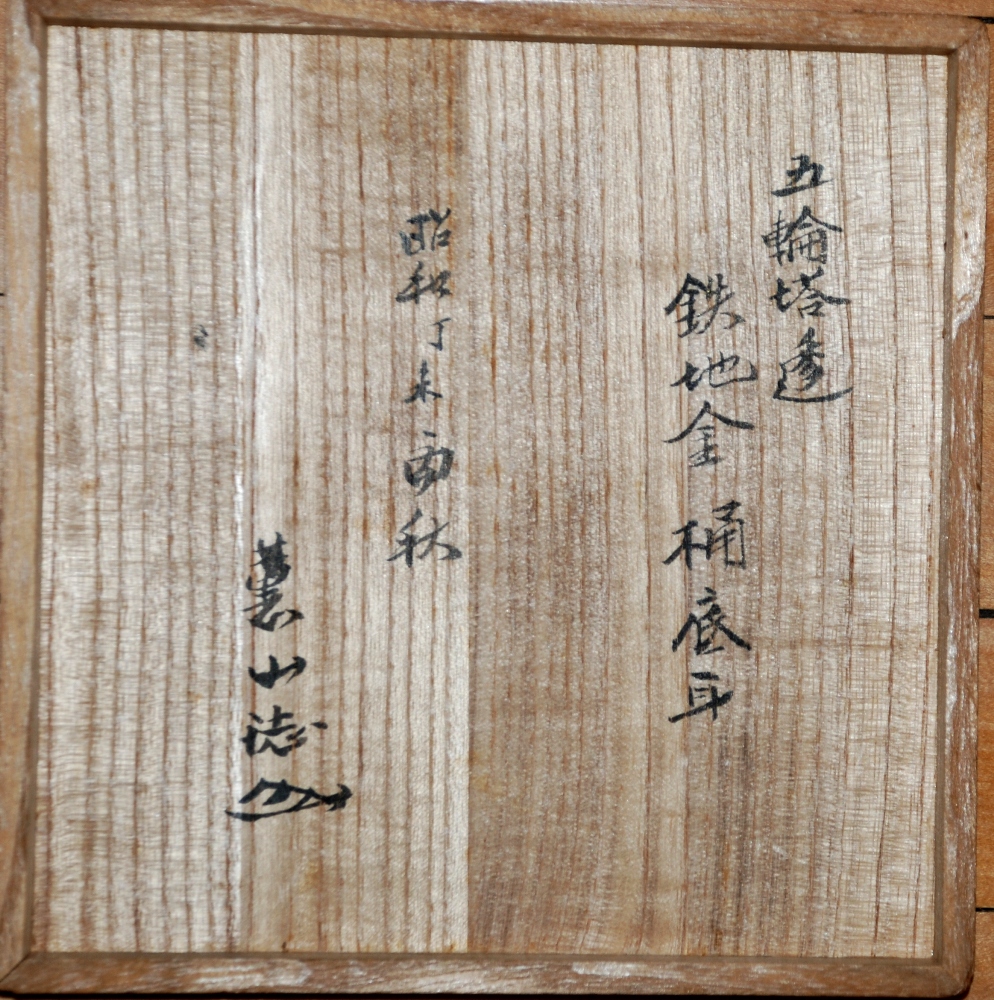 五輪塔透
鉄地金 桶底耳
昭和丁未秋
薫山誌